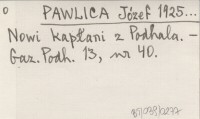 o
PAWLICA Józef 1925...
Nowi kapłani z Podhala. -
Gaz. Podh. 13, nr 40.